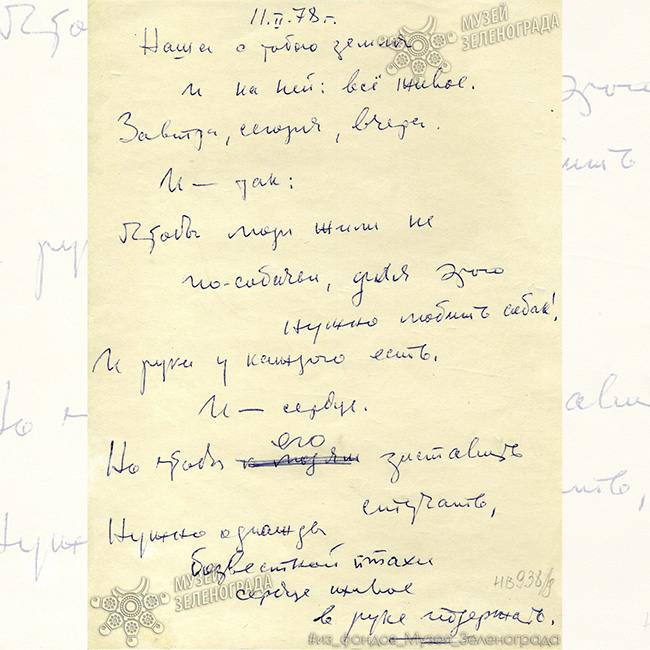 11.II.78 г.
МУЗЕЙ
ЗЕЛЕНОГРАДА
Наша с тобою земля
И на ней: всё живое.
Завтра, сегодня, вчера.
И — так:
Чтобы люди жили не
по-собачьи, для этого
нужно любить собак!
И руки у каждого есть.
И — сердце.
его
Но чтобы к людям заставить
стучать,
Нужно однажды
безвестной птахи
сердце живое
в руке подержать.
НВ 938/8
МУЗЕЙ
ЗЕЛЕНОГРАДА
#из_фондов_Музея_Зеленограда